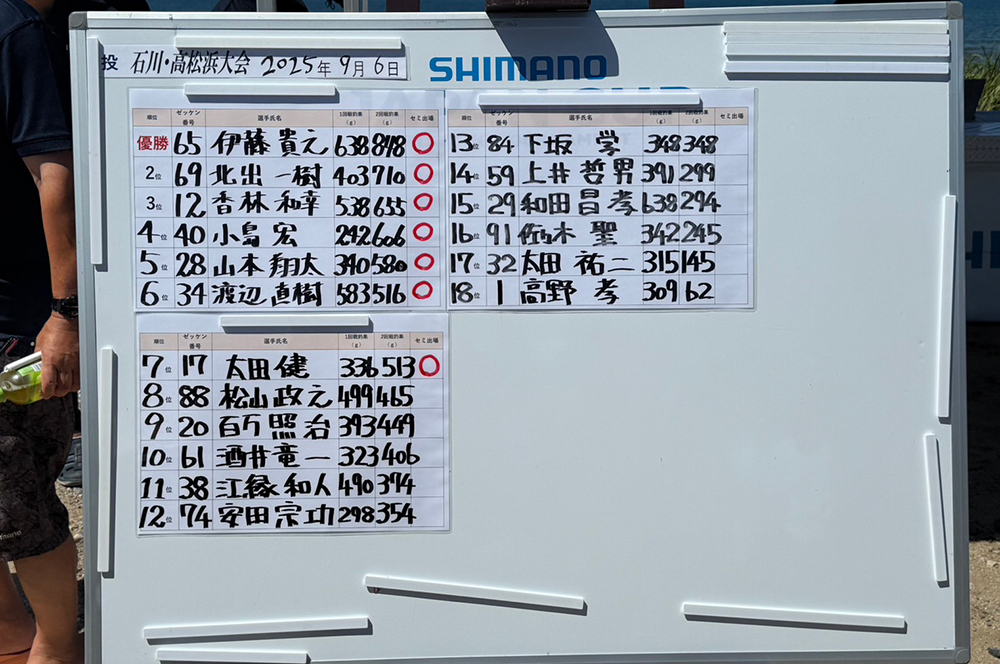 投 石川・高松浜大会 2025年9月6日
SHIMANO
順位 ゼッケン番号 選手氏名 1回戦釣果(g) 2回戦釣果(g) セミ出場
優勝 65 伊藤貴之 638 848 ○
2位 69 北出一樹 403 710 ○
3位 12 香林和幸 538 655 ○
4位 40 小島宏 242 606 ○
5位 28 山本翔太 340 580 ○
6位 34 渡辺直樹 583 516 ○
順位 ゼッケン番号 選手氏名 1回戦釣果(g) 2回戦釣果(g) セミ出場
7位 17 太田健 336 513 ○
8位 88 松山政之 499 465
9位 20 百万照治 393 449
10位 61 酒井竜一 323 406
11位 38 江縁和人 490 374
12位 74 安田宗功 298 354
順位 ゼッケン番号 選手氏名 1回戦釣果(g) 2回戦釣果(g) セミ出場
13位 84 下坂学 348 348
14位 59 上井哲男 391 299
15位 29 和田昌孝 638 294
16位 91 佐々木聖 342 245
17位 32 太田祐二 315 145
18位 1 高野孝 309 62